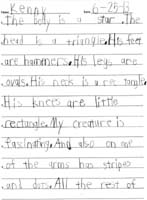 Kenny 6-25-13
The body is a star. The
head is a triangle. His feet
are hammers. His legs are
ovals. His neck is a rectangle.
His knees are little
rectangle. My creature is
fascinating. And also on one
of the arms has stripes
and dots. All the rest of